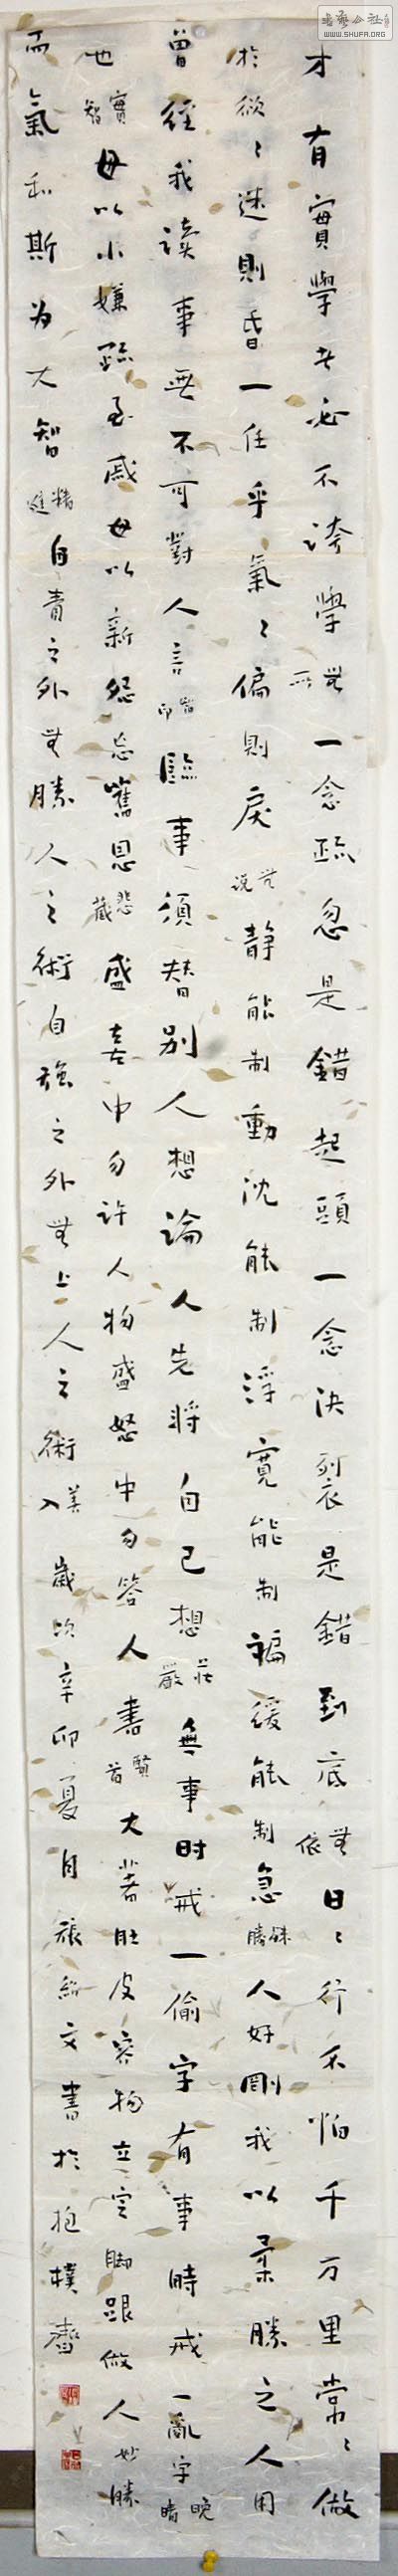 才有實學者必不誇學一念疏忽是錯起頭一念決裂是錯到底無依日々行不怕千万里常々做
於欲々迷則昏一任乎氣々偏則戾靜能制動沈能制浮寬能制褊緩能制急殊勝人好剛我以柔勝之人用
曾經我读事無不可對人言智印臨事須替別人想論人先將自己想莊嚴無事时戒一偷字有事時戒一亂字晚晴
也實智毋以小嫌疏至戚毋以新怨忘舊恩悲藏盛喜中勿許人物盛怒中勿答人書賢首大著肚皮容物立定腳跟做人妙勝
而氣和斯为大智精進自責之外無勝人之術自強之外無上人之術善入歲次辛卯夏月文書於抱樸齋
WWW.SHUFA.ORG